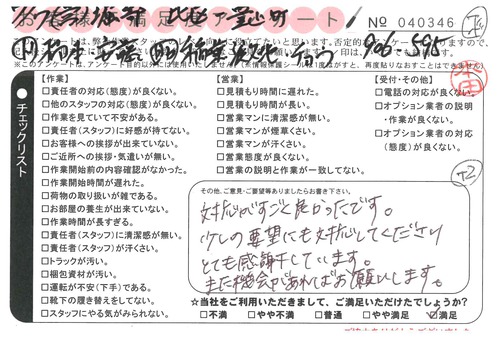 お客様満足度アンケート
No 040346
チェックリスト
【作業】
□責任者の対応(態度)が良くない。
□他のスタッフの対応(態度)が良くない。
□作業を見ていて不安がある。
□責任者(スタッフ)に好感が持てない。
□お客様への挨拶が出来ていない。
□ご近所への挨拶・気遣いが無い。
□作業開始前の内容確認がなかった。
□作業開始時間が遅れた。
□荷物の取り扱いが雑である。
□お部屋の養生が出来ていない。
□作業時間が長すぎる。
□責任者(スタッフ)に清潔感が無い。
□責任者(スタッフ)が汗くさい。
□トラックが汚い。
□梱包資材が汚い。
□運転が不安(下手)である。
□靴下の履き替えをしてない。
□スタッフにやる気がみられない。
【営業】
□見積もり時間に遅れた。
□見積もり時間が長い。
□営業マンに清潔感が無い。
□営業マンが煙草くさい。
□営業マンが汗くさい。
□営業態度が良くない。
□営業の説明と作業が一致してない。
【受付・その他】
□電話の対応が良くない。
□オプション業者の説明
・作業が良くない。
□オプション業者の対応
(態度)が良くない。
その他、ご意見・ご要望等ありましたらお書き下さい。
対応がすごく良かったです。
少しの要望にも対応してくださり
とても感謝しています。
また機会があればお願いします。
☆当社をご利用いただきまして、ご満足いただけたでしょうか?
□不満 □やや不満 □普通 □やや満足 ☑満足